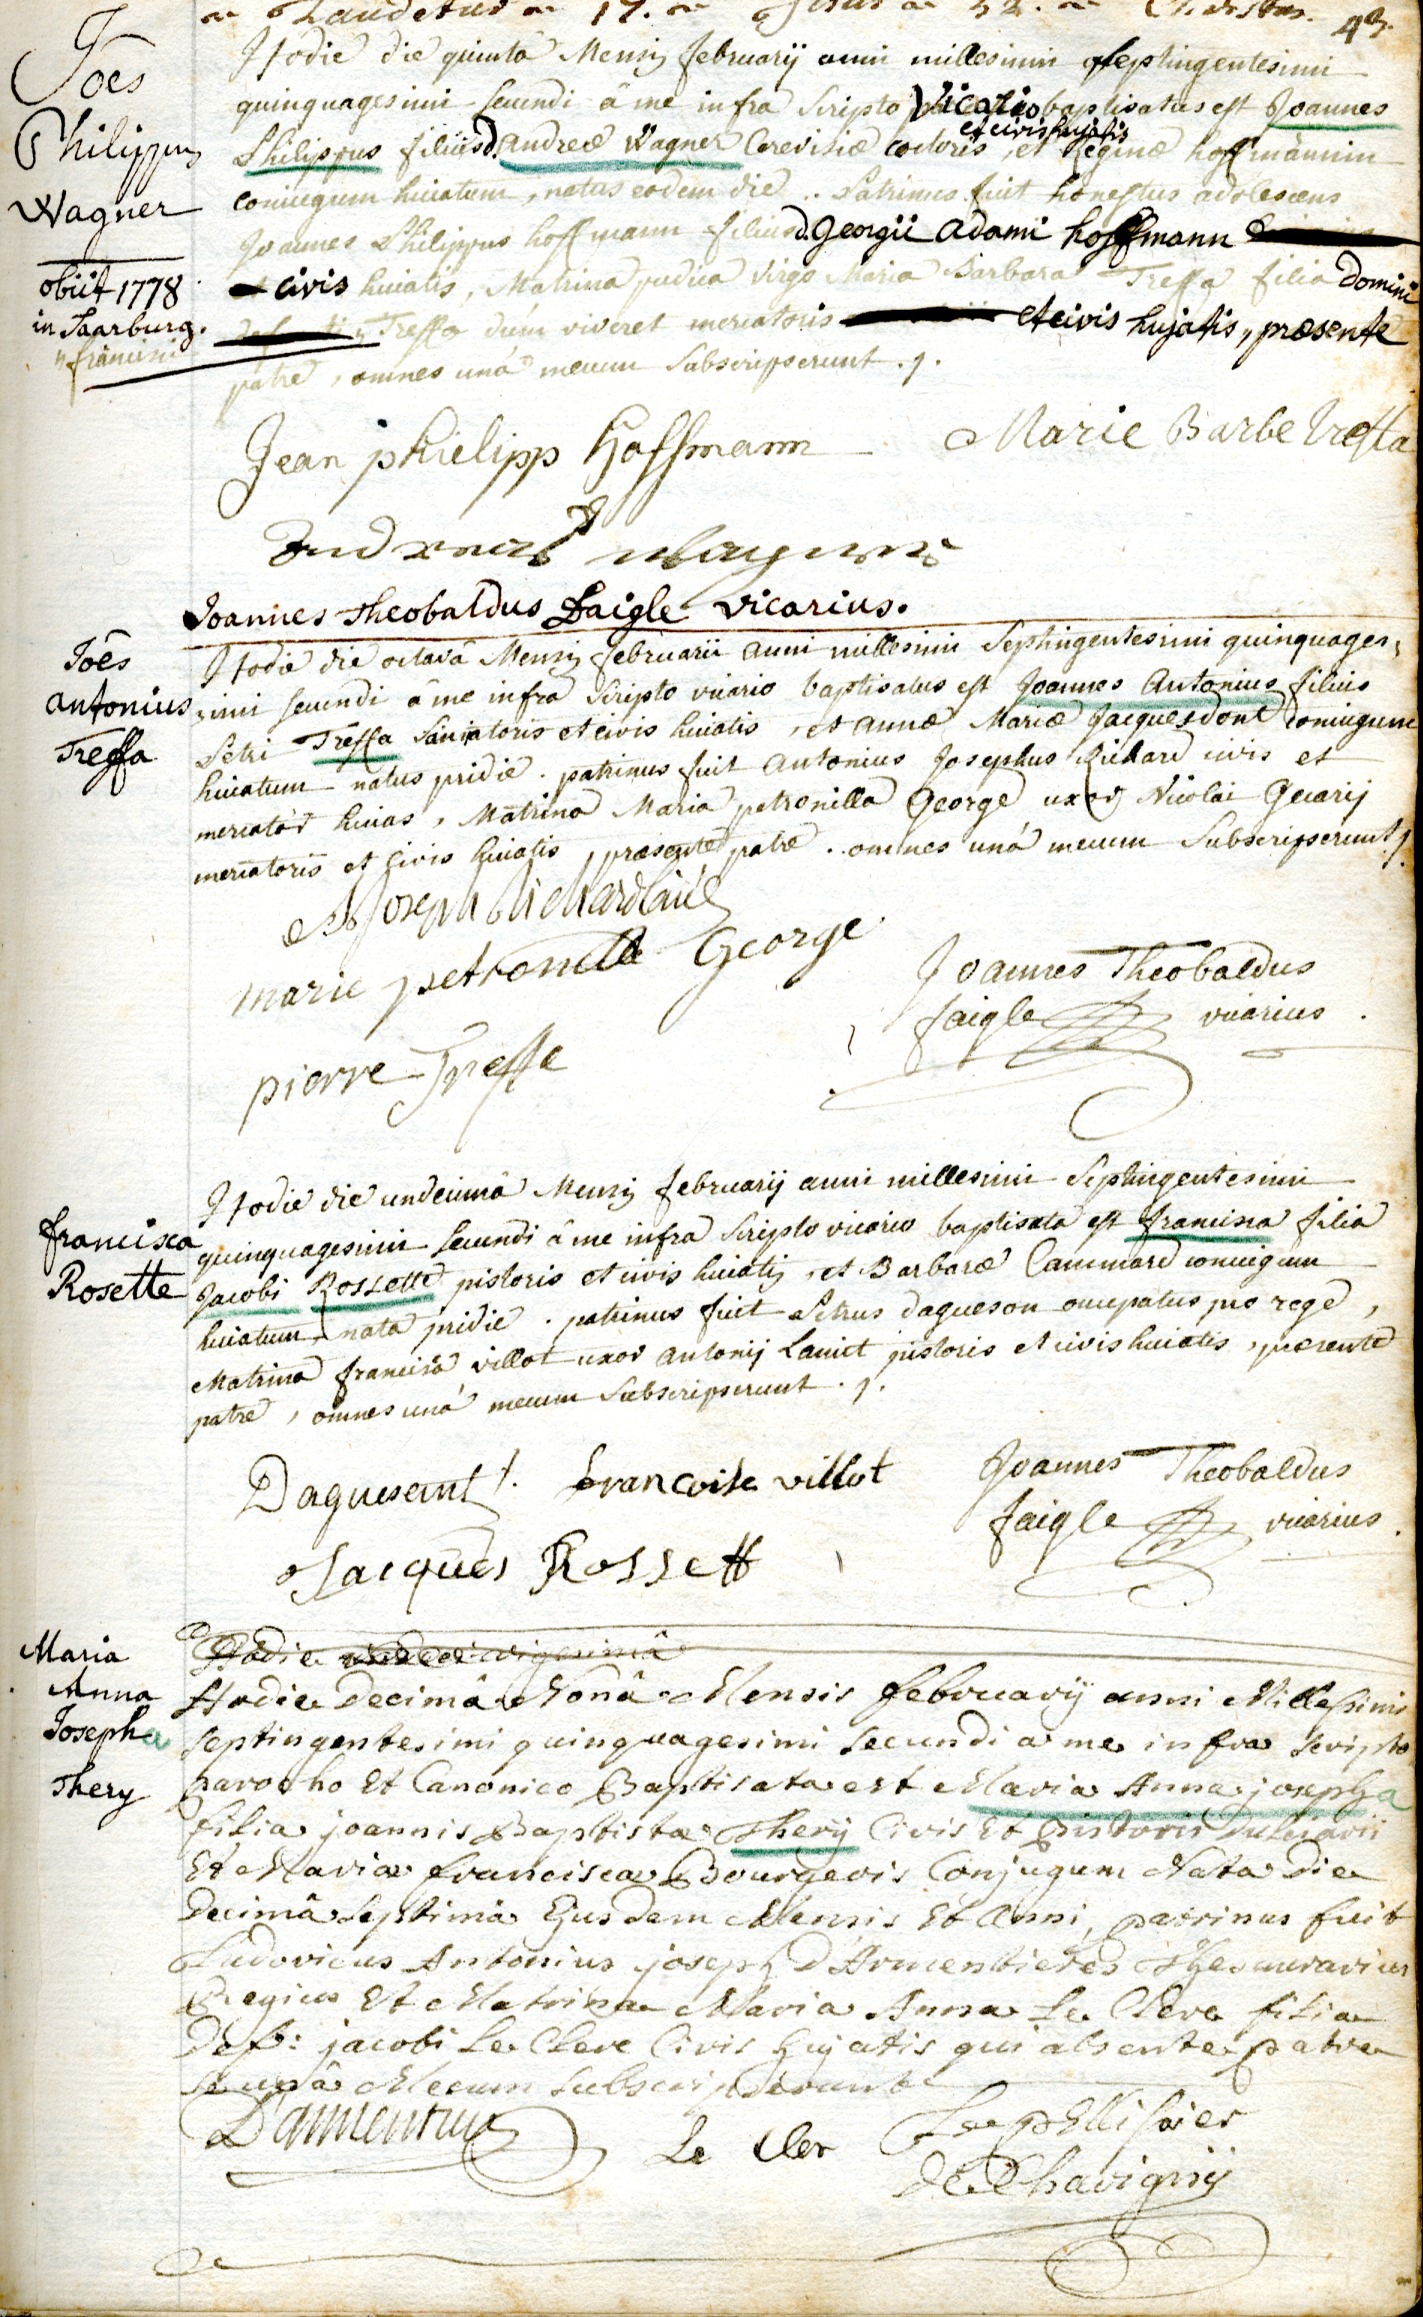 Laudetur 17. 52. Christus. 43.
Joês
Philippus
Wagner
obiit 1778
in Saarburg.
Hodie die quintâ Mensis februarij anni millesimi septingentesimi
quinquagesimi secundi â me infra scripto vicario baptisatus est Joannes
et civis hujatis
Philippus filius D. andreæ Wagner Cerevisiæ coctoris, et Reginæ hoffmännin
coniugum huiatum, natus eodem die. Patrinus fuit honestus adolescens
Joannes Philippus hoffmann filius d. georgii adami hoffmann
civis huiatis, Matrina pudica virgo Maria Barbara Treffa filia Domini
Treffa dum viveret mercatoris et civis hujatis, præsente
patre, omnes unâ mecum subscripserunt.
Jean philipp hoffmann Marie Barbe treffa
andreas wagner
Joannes Theobaldus Jaigle vicarius.
Joês
antonius
Treffa
Hodie die octavâ Mensis februarii anni millesimi septingentesimi quinquages,
,imi secundi â me infra scripto vicario baptisatus est Joannes Antonius filius
Petri Treffa et civis huiatis, et annæ Mariæ Jacquesdont coniugum
huiatum natus pridie. patrinus fuit antonius Josephus Richard civis et
mercator huias, Matrina Maria petronilla George uxor Nicolai Gearij
mercatoris et civis huiatis, præsente patre. omnes unâ mecum subscripserunt.
marie petronille George
pierre Treffe
Joannes Theobaldus
Jaigle vicarius.
francisca
Rosette
Hodie die undecimâ Mensis februarij anni millesimi septingentesimi
quinquagesimi secundi â me infra scripto vicario baptisata est francisca filia
Jacobi Rossette pistoris et civis huiatis, et Barbaræ Cammard coniugum
huiatum nata pridie. patrinus fuit Petrus dagueson occupatus pro rege,
Matrina francisca villot uxor antonij Lanict pistoris et civis huiatis, præsente
patre, omnes unâ mecum subscripserunt.
Daguesant francoise villot
Jacques Rossett
Joannes Theobaldus
Jaigle vicarius.
Maria
Anna
Josepha
Thery
Hodie vigesimâ
Hodie Decimâ Nonâ Mensis februarij anni Millessimi
septingentesimi quinquagesimi secundi a me infra scripto
parocho Et Canonico Baptisata est Maria Anna josepha
filia joannis Baptistæ Therij Civis Et pistoris
Et Mariæ franciscæ Bourgeois Conjugum Nata Die
Decimâ septimâ Ejusdem Mensis Et Anni, patrinus fuit
Ludovicus Antonius joseph D'Armentieres Thesaurarius
Regius Et Matrina Maria Anna Le Clerc filia
Def: jacobi Le Clerc Civis hujatis qui absente patre
unâ Mecum subscripserunt
D'armentier Le Cler Le pellissier
de Chavignij